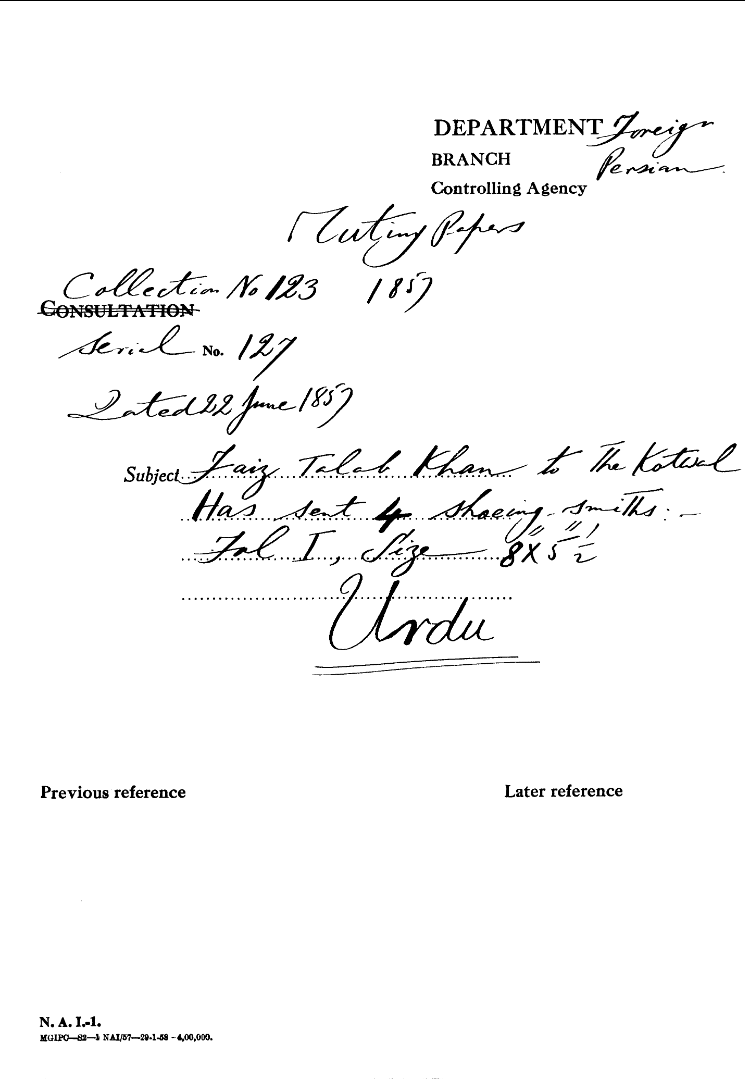 DEPARTMENT Foreign
BRANCH Persian
Controlling Agency
Mutiny Papers
Collection No 123 1857
CONSULTATION
Serial No. 127
Dated 22 June 1857
Subject Faiz Talab Khan to The Kotwal
Has sent 4 shoeing-smiths:-
Fol I, Size 8" X 5 1/2"
Urdu
Previous reference
Later reference
N. A. I.-1.
MGIPC—S2—1 NAI/57—29-1-58—4,00,000.